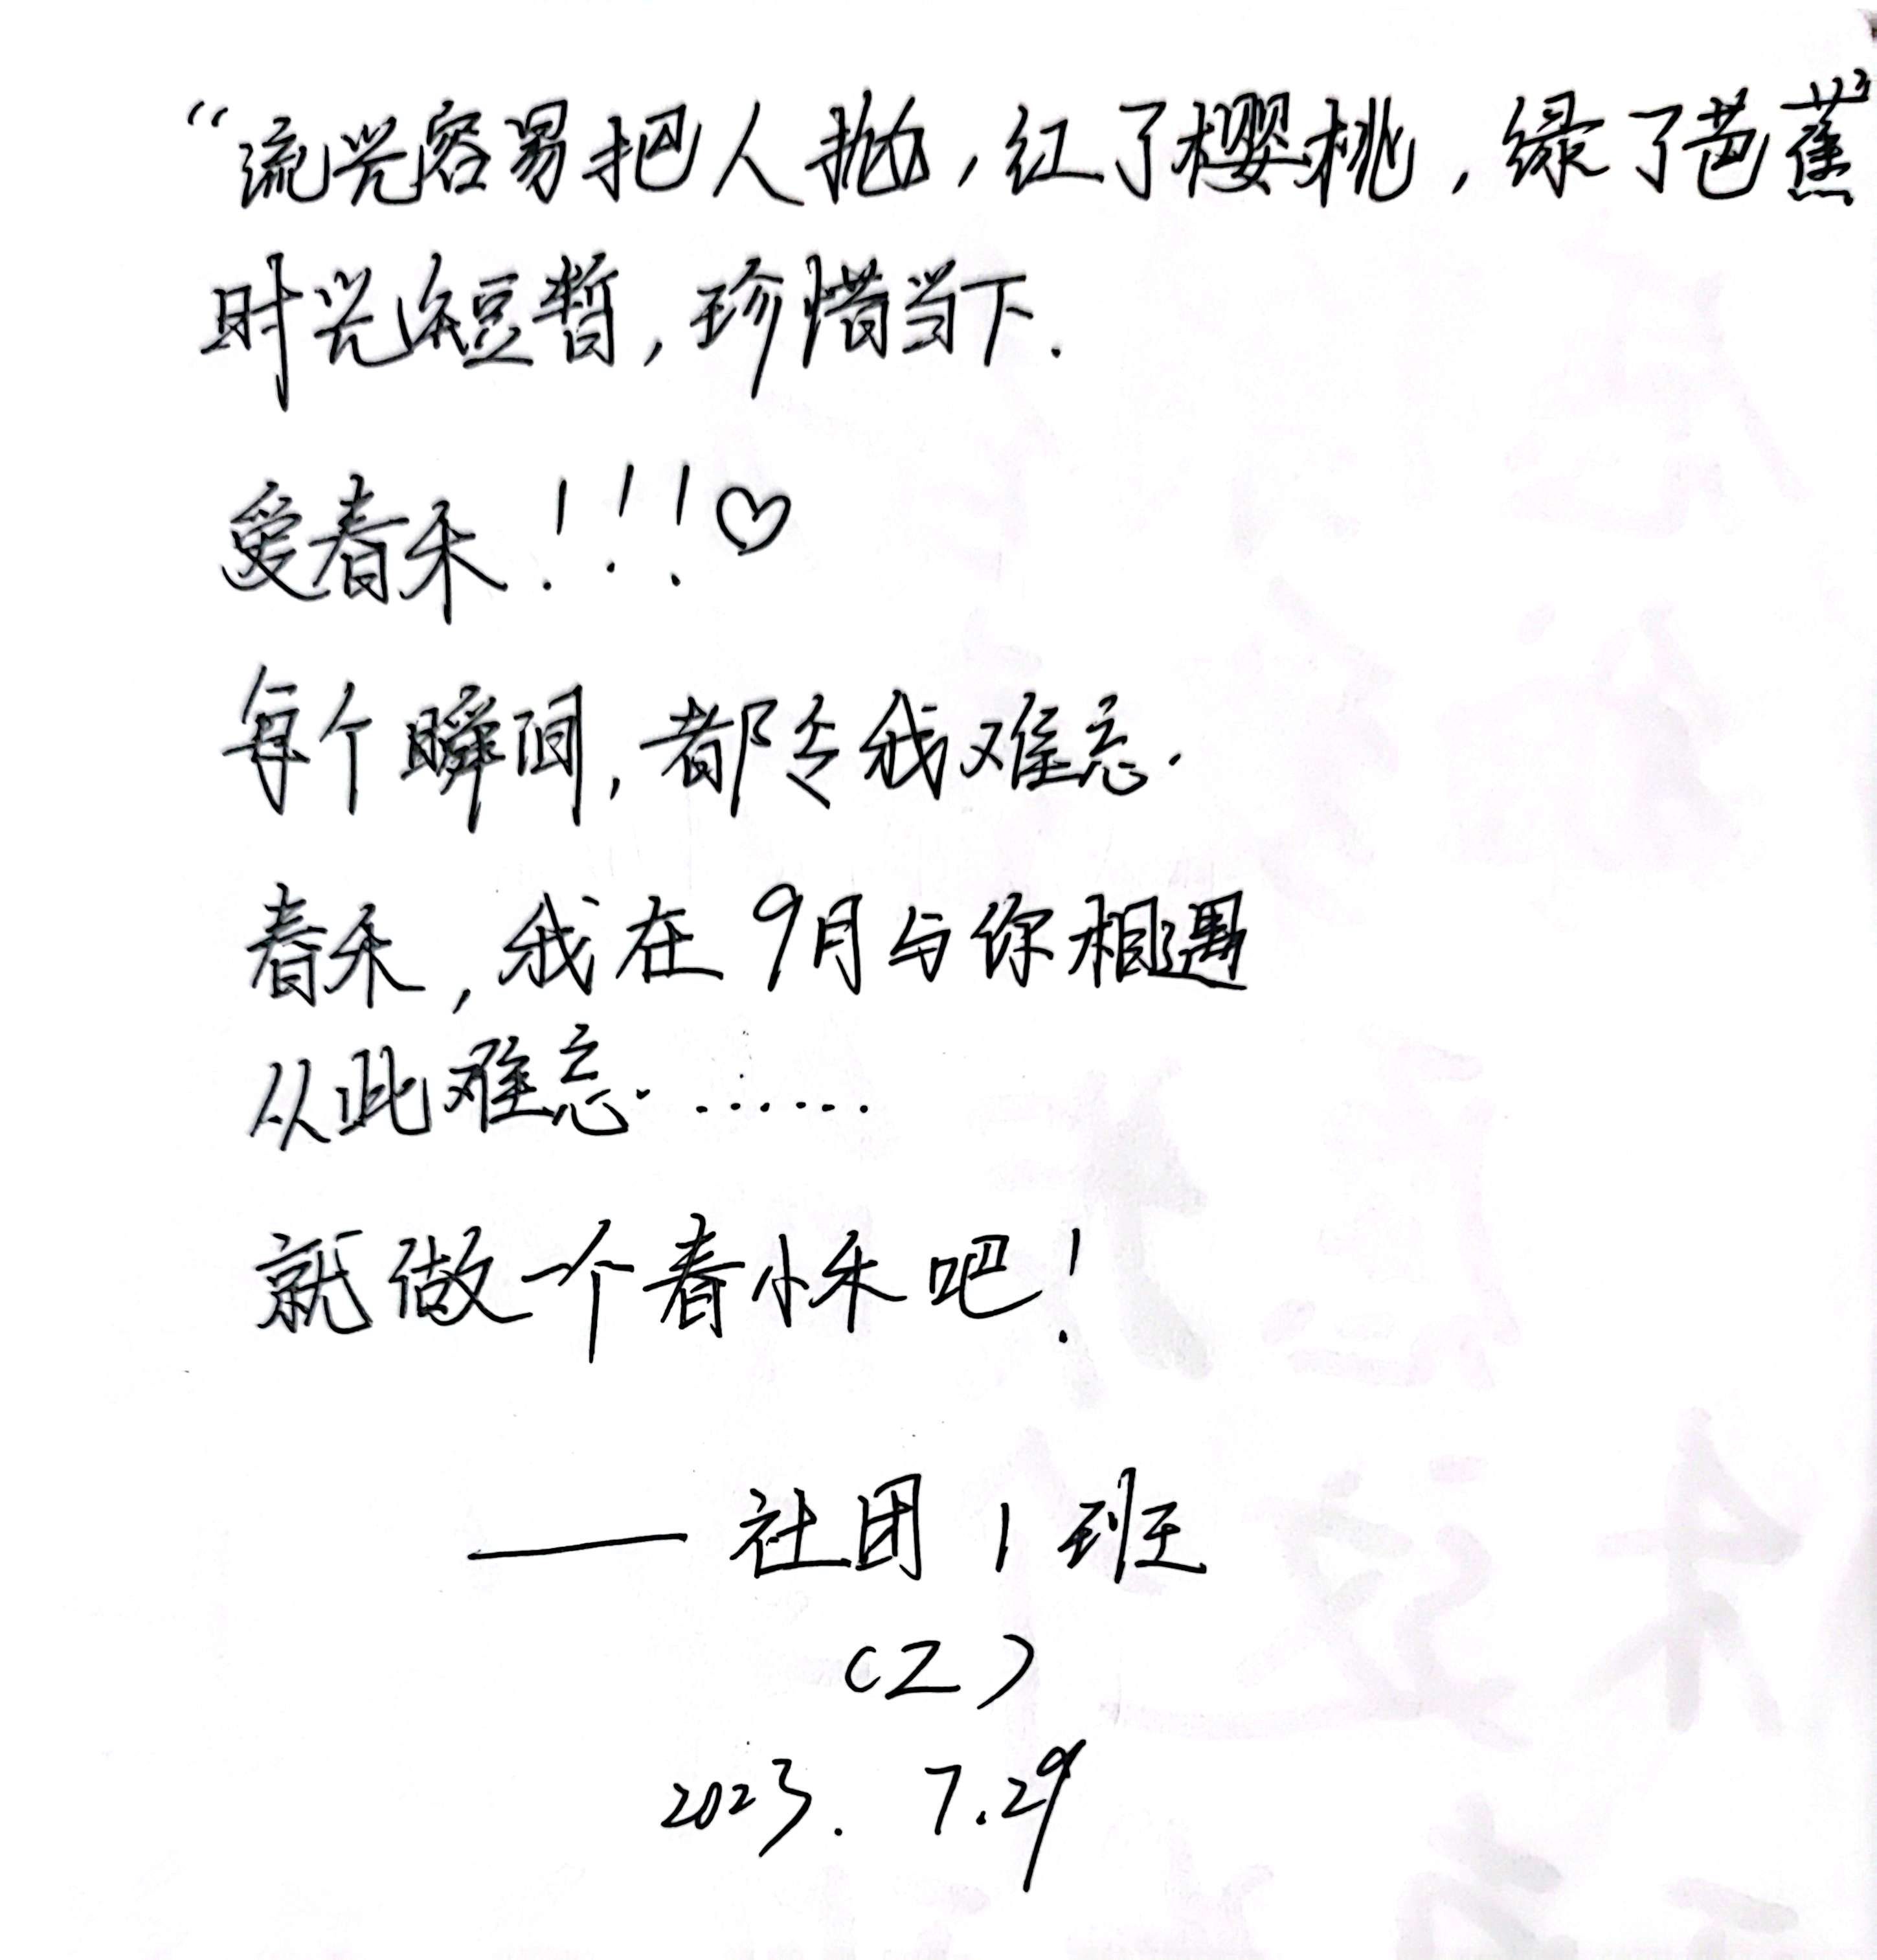 “流光容易把人抛，红了樱桃，绿了芭蕉”
时光短暂，珍惜当下.
爱春禾！！！♡
每个瞬间，都令我难忘.
春禾，我在9月与你相遇
从此难忘. ......
就做一个春小禾吧！
—— 社团1班
(Z)
2023. 7.29